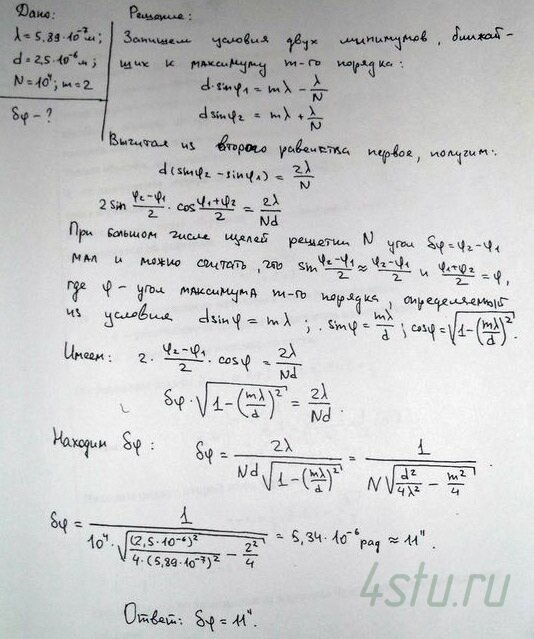 Дано:
λ = 5,89·10⁻⁷ м;
d = 2,5·10⁻⁶ м;
N = 10⁴; m = 2
δφ – ?
Решение:
Запишем условия двух минимумов, ближай-
ших к максимуму m-го порядка:
d·sinφ₁ = mλ − λ/N
dsinφ₂ = mλ + λ/N
Вычитая из второго равенства первое, получим:
d(sinφ₂ − sinφ₁) = 2λ/N
2 sin (φ₂−φ₁)/2 · cos (φ₁+φ₂)/2 = 2λ/Nd
При большом числе щелей решетки N угол δφ = φ₂ − φ₁
мал и можно считать, что sin (φ₂−φ₁)/2 ≈ (φ₂−φ₁)/2 и (φ₁+φ₂)/2 = φ,
где φ – угол максимума m-го порядка, определяемый
из условия dsinφ = mλ; sinφ = mλ/d; cosφ = √(1 − (mλ/d)²).
Имеем: 2 · (φ₂−φ₁)/2 · cosφ = 2λ/Nd
δφ · √(1 − (mλ/d)²) = 2λ/Nd.
Находим δφ: δφ = 2λ/(Nd√(1 − (mλ/d)²)) = 1/(N√(d²/4λ² − m²/4)).
δφ = 1/(10⁴·√((2,5·10⁻⁶)²/(4·(5,89·10⁻⁷)²) − 2²/4)) = 5,34·10⁻⁶ рад ≈ 11″.
4stu.ru
Ответ: δφ = 11″.